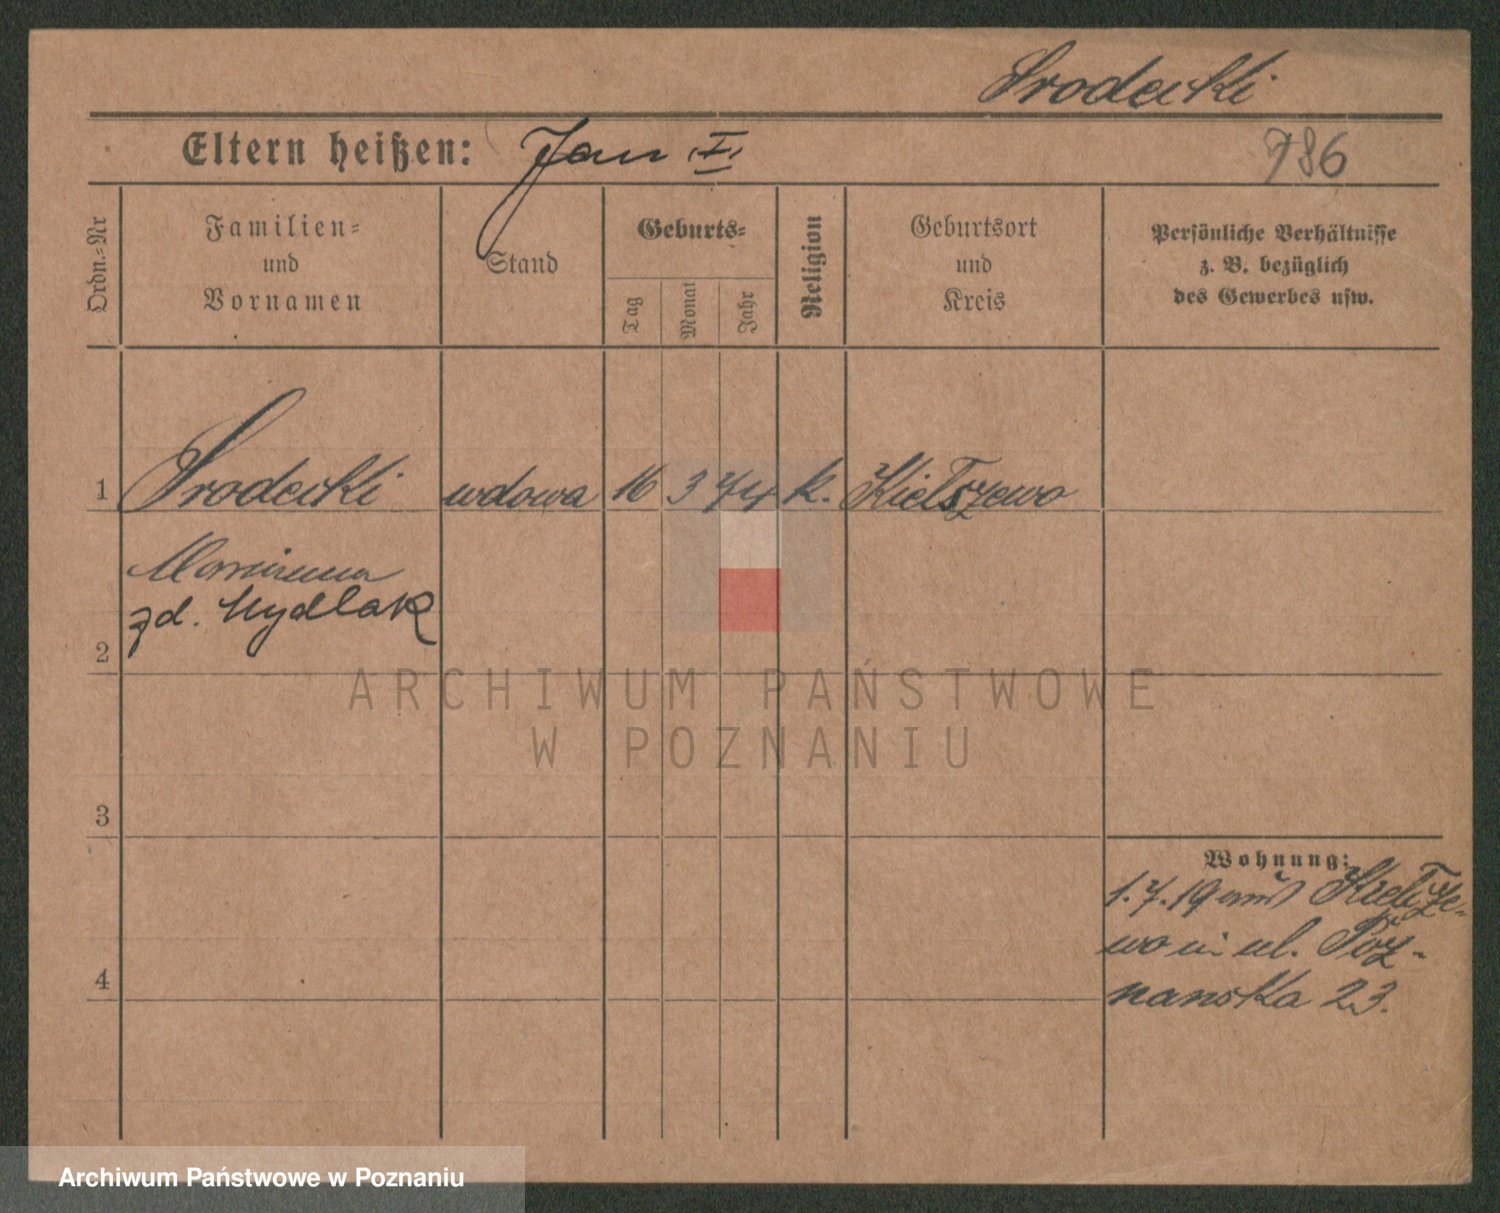 Srodecki
Eltern heißen: Jan I.
786
Ordn.=Nr
Familien=
und
Vornamen
Stand
Geburts=
Tag
Monat
Jahr
Religion
Geburtsort
und
Kreis
Persönliche Verhältnisse
z. B. bezüglich
des Gewerbes usw.
1 Srodecki wdowa 16 3 74 k. Kiełszewo
Maryanna
zd. Mydlak
2
3
4
Wohnung:
1.7.19 aus Kiełsze-
wo in ul. Poz-
nanska 23.
ARCHIWUM PAŃSTWOWE
W POZNANIU
Archiwum Państwowe w Poznaniu